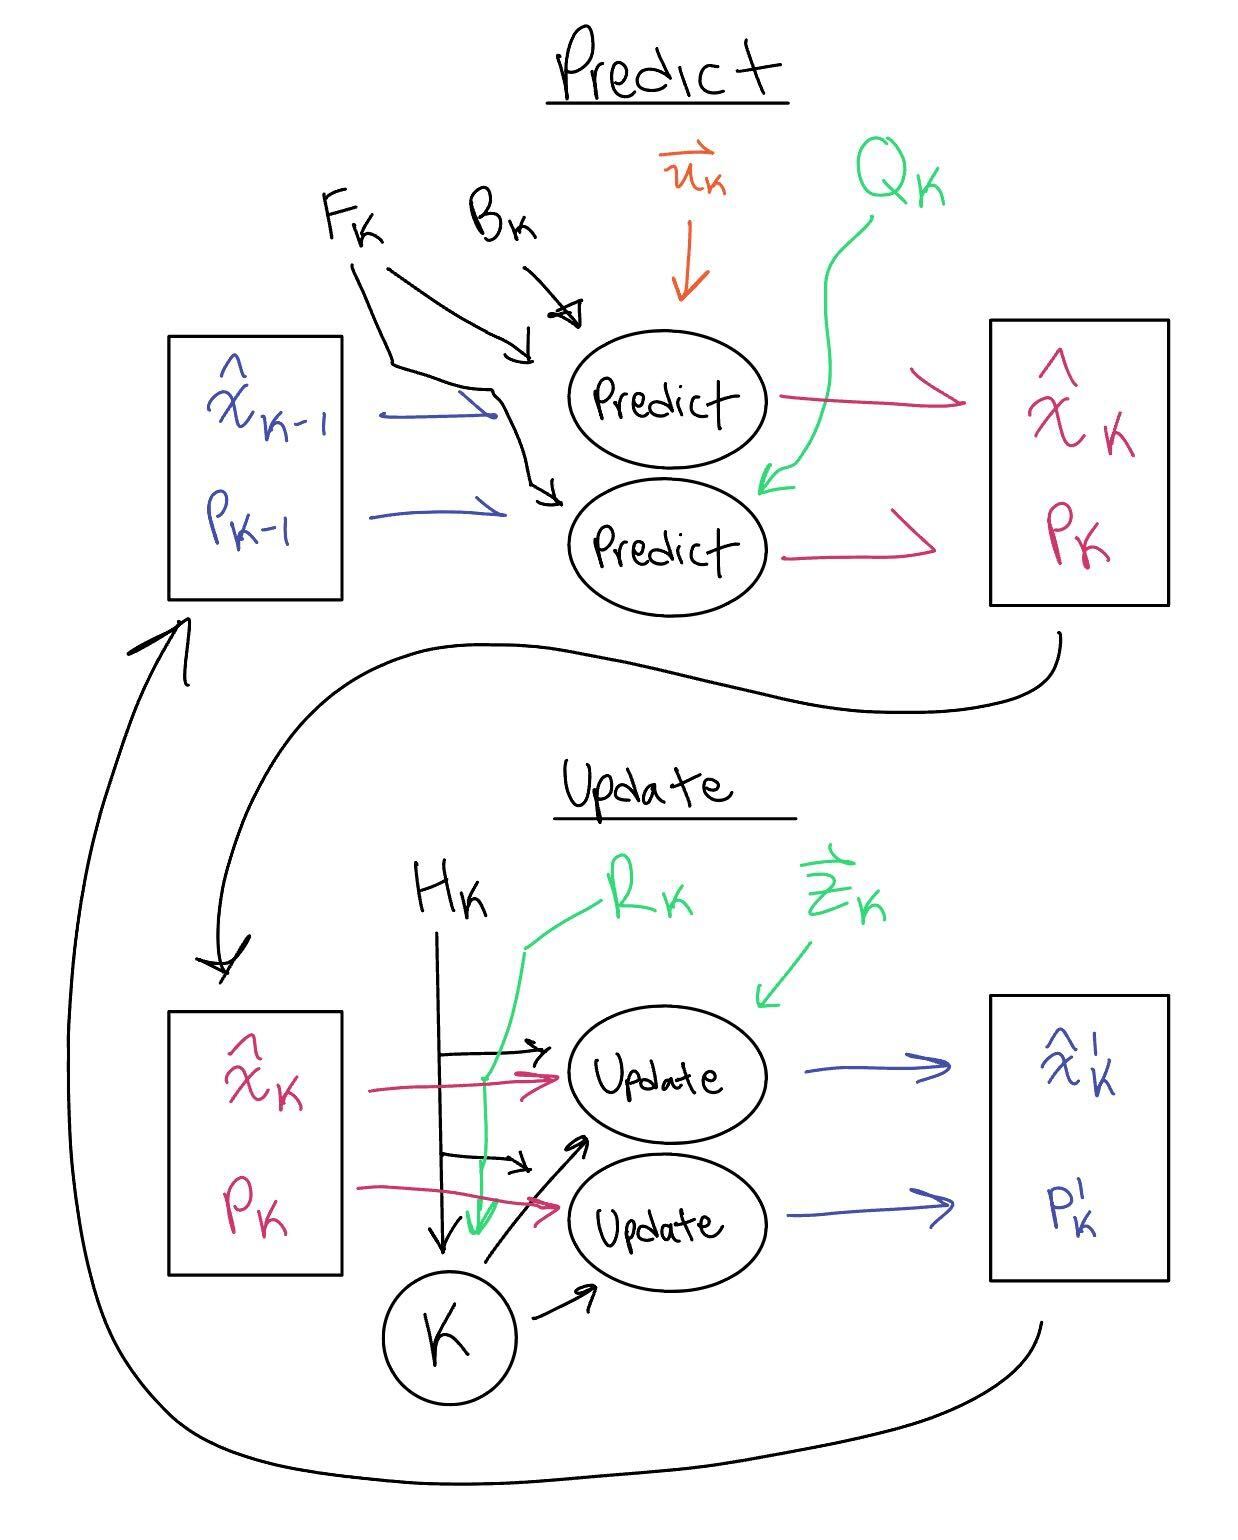 Predict
u⃗ₖ
Qₖ
Fₖ
Bₖ
x̂ₖ₋₁
Pₖ₋₁
Predict
Predict
x̂ₖ
Pₖ
Update
Hₖ
Rₖ
z⃗ₖ
x̂ₖ
Pₖ
Update
Update
K
x̂'ₖ
P'ₖ